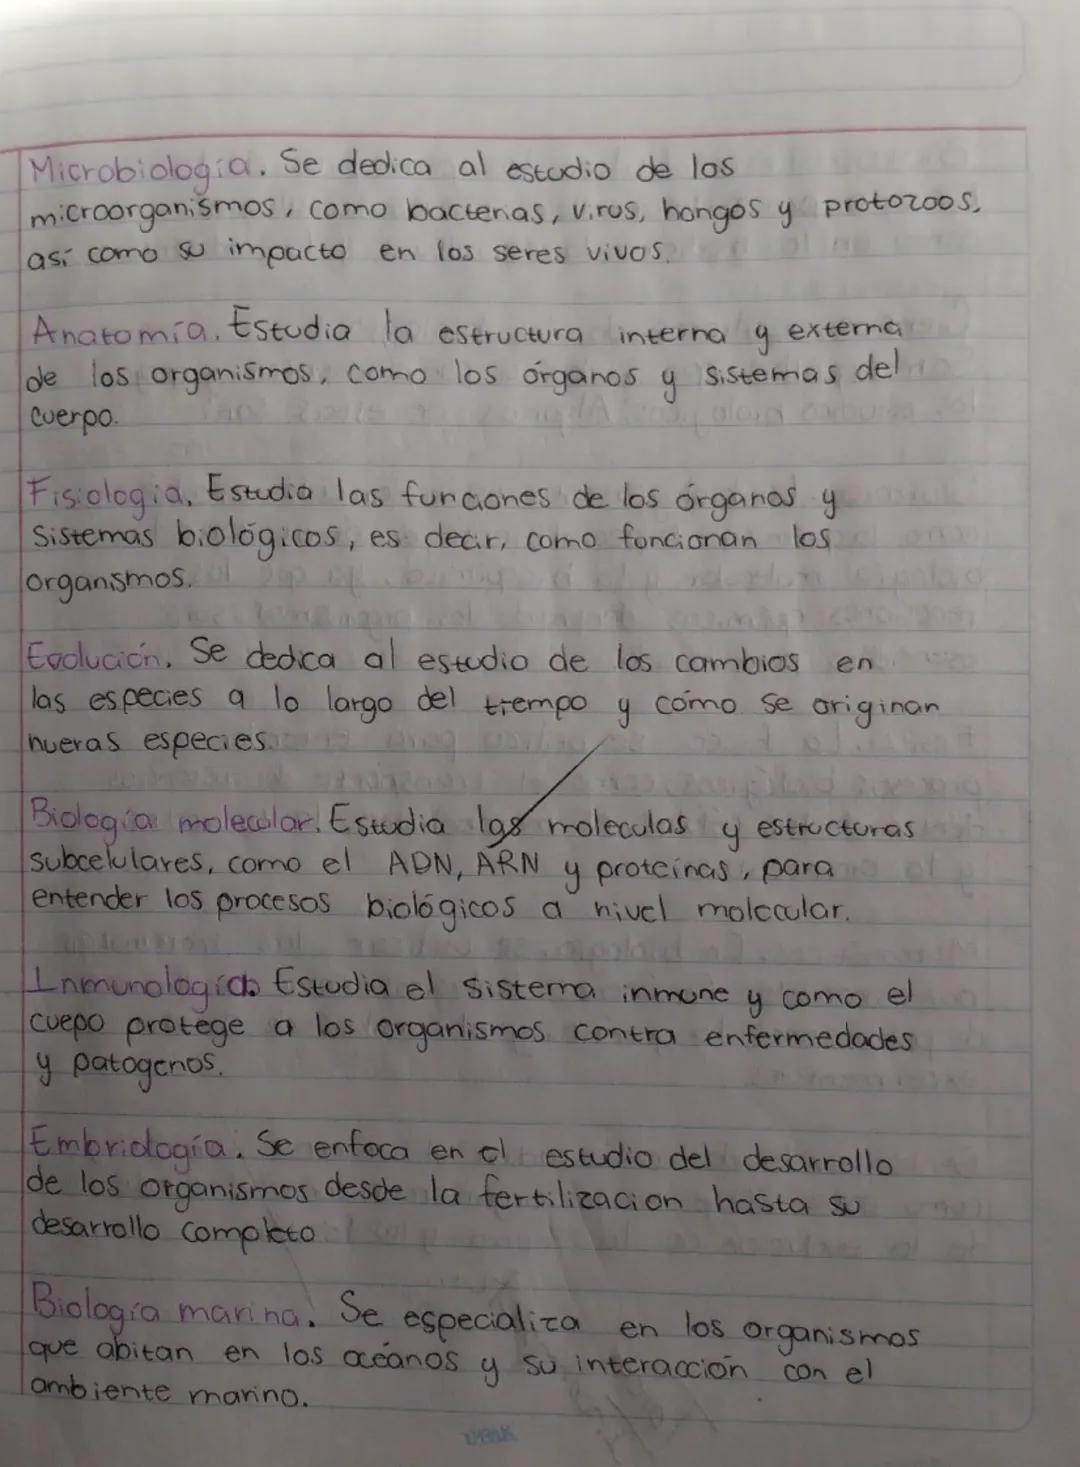 Microbiología. Se dedica al estudio de los
microorganismos, como bacterias, virus, hongos y protozoos,
así como su impacto en los seres vivos.
Anatomía. Estudia la estructura interna y externa
de los organismos, como los órganos y sistemas del
cuerpo.
Fisiología. Estudia las funciones de los órganos y
Sistemas biológicos, es decir, como funcionan los
organismos.
Evolución. Se dedica al estudio de los cambios en
las especies a lo largo del tiempo y cómo se originan
nuevas especies.
Biología molecular. Estudia las moleculas y estructuras
subcelulares, como el ADN, ARN y proteínas, para
entender los procesos biológicos a nivel molecular.
Inmunología. Estudia el sistema inmune y como el
cuepo protege a los organismos contra enfermedades
y patogenos.
Embriología. Se enfoca en el estudio del desarrollo
de los organismos desde la fertilizacion hasta su
desarrollo completo
Biología marina. Se especializa en los organismos
que abitan en los océanos y su interacción con el
ambiente marino.